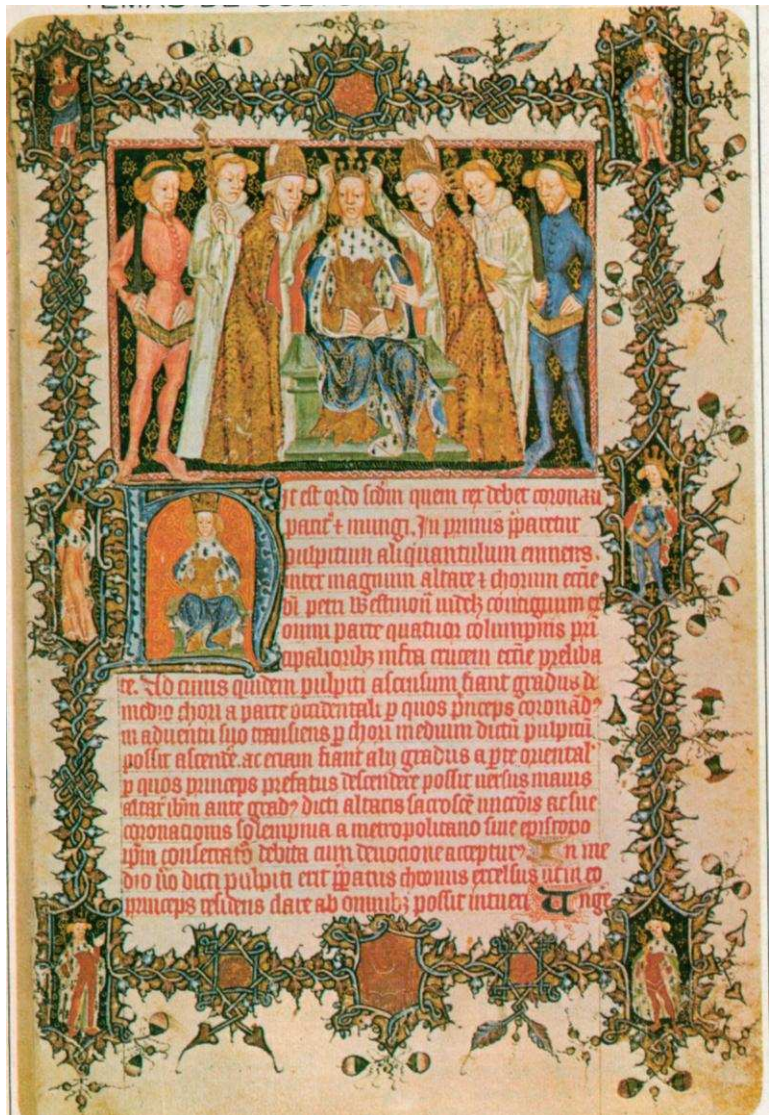 TEMAS DE
ic est ordo scdm quem rex debet coronari
pacit & inungi. In primis pparetur
pulpitum aliquantulum eminens.
inter magnum altare & chorum eccie
di petri Westmon videlz contiguum ex
omni parte quatuor columpnis pri
cipalioribz infra crucem eccie preliba
te. Ad cuius quidem pulpiti ascensum fiant gradus de
medio chori a parte occidentali p quos princeps coronad
in adventu suo transiens p chori medium dictu pulpitu
possit ascende. ac eciam fiant alij gradus a pte oriental
p quos princeps prefatus descendere possit versus maius
altar ibm ante grad dicti altaris sacrosce unccois ac sue
coronacionis solempnia a metropolitano sive episcopo
ipm consecrat debita cum devocione acceptur In me
dio vo dicti pulpiti erit ppatus thronus excelsus ut in eo
princeps residens clare ab omnibz possit intueri